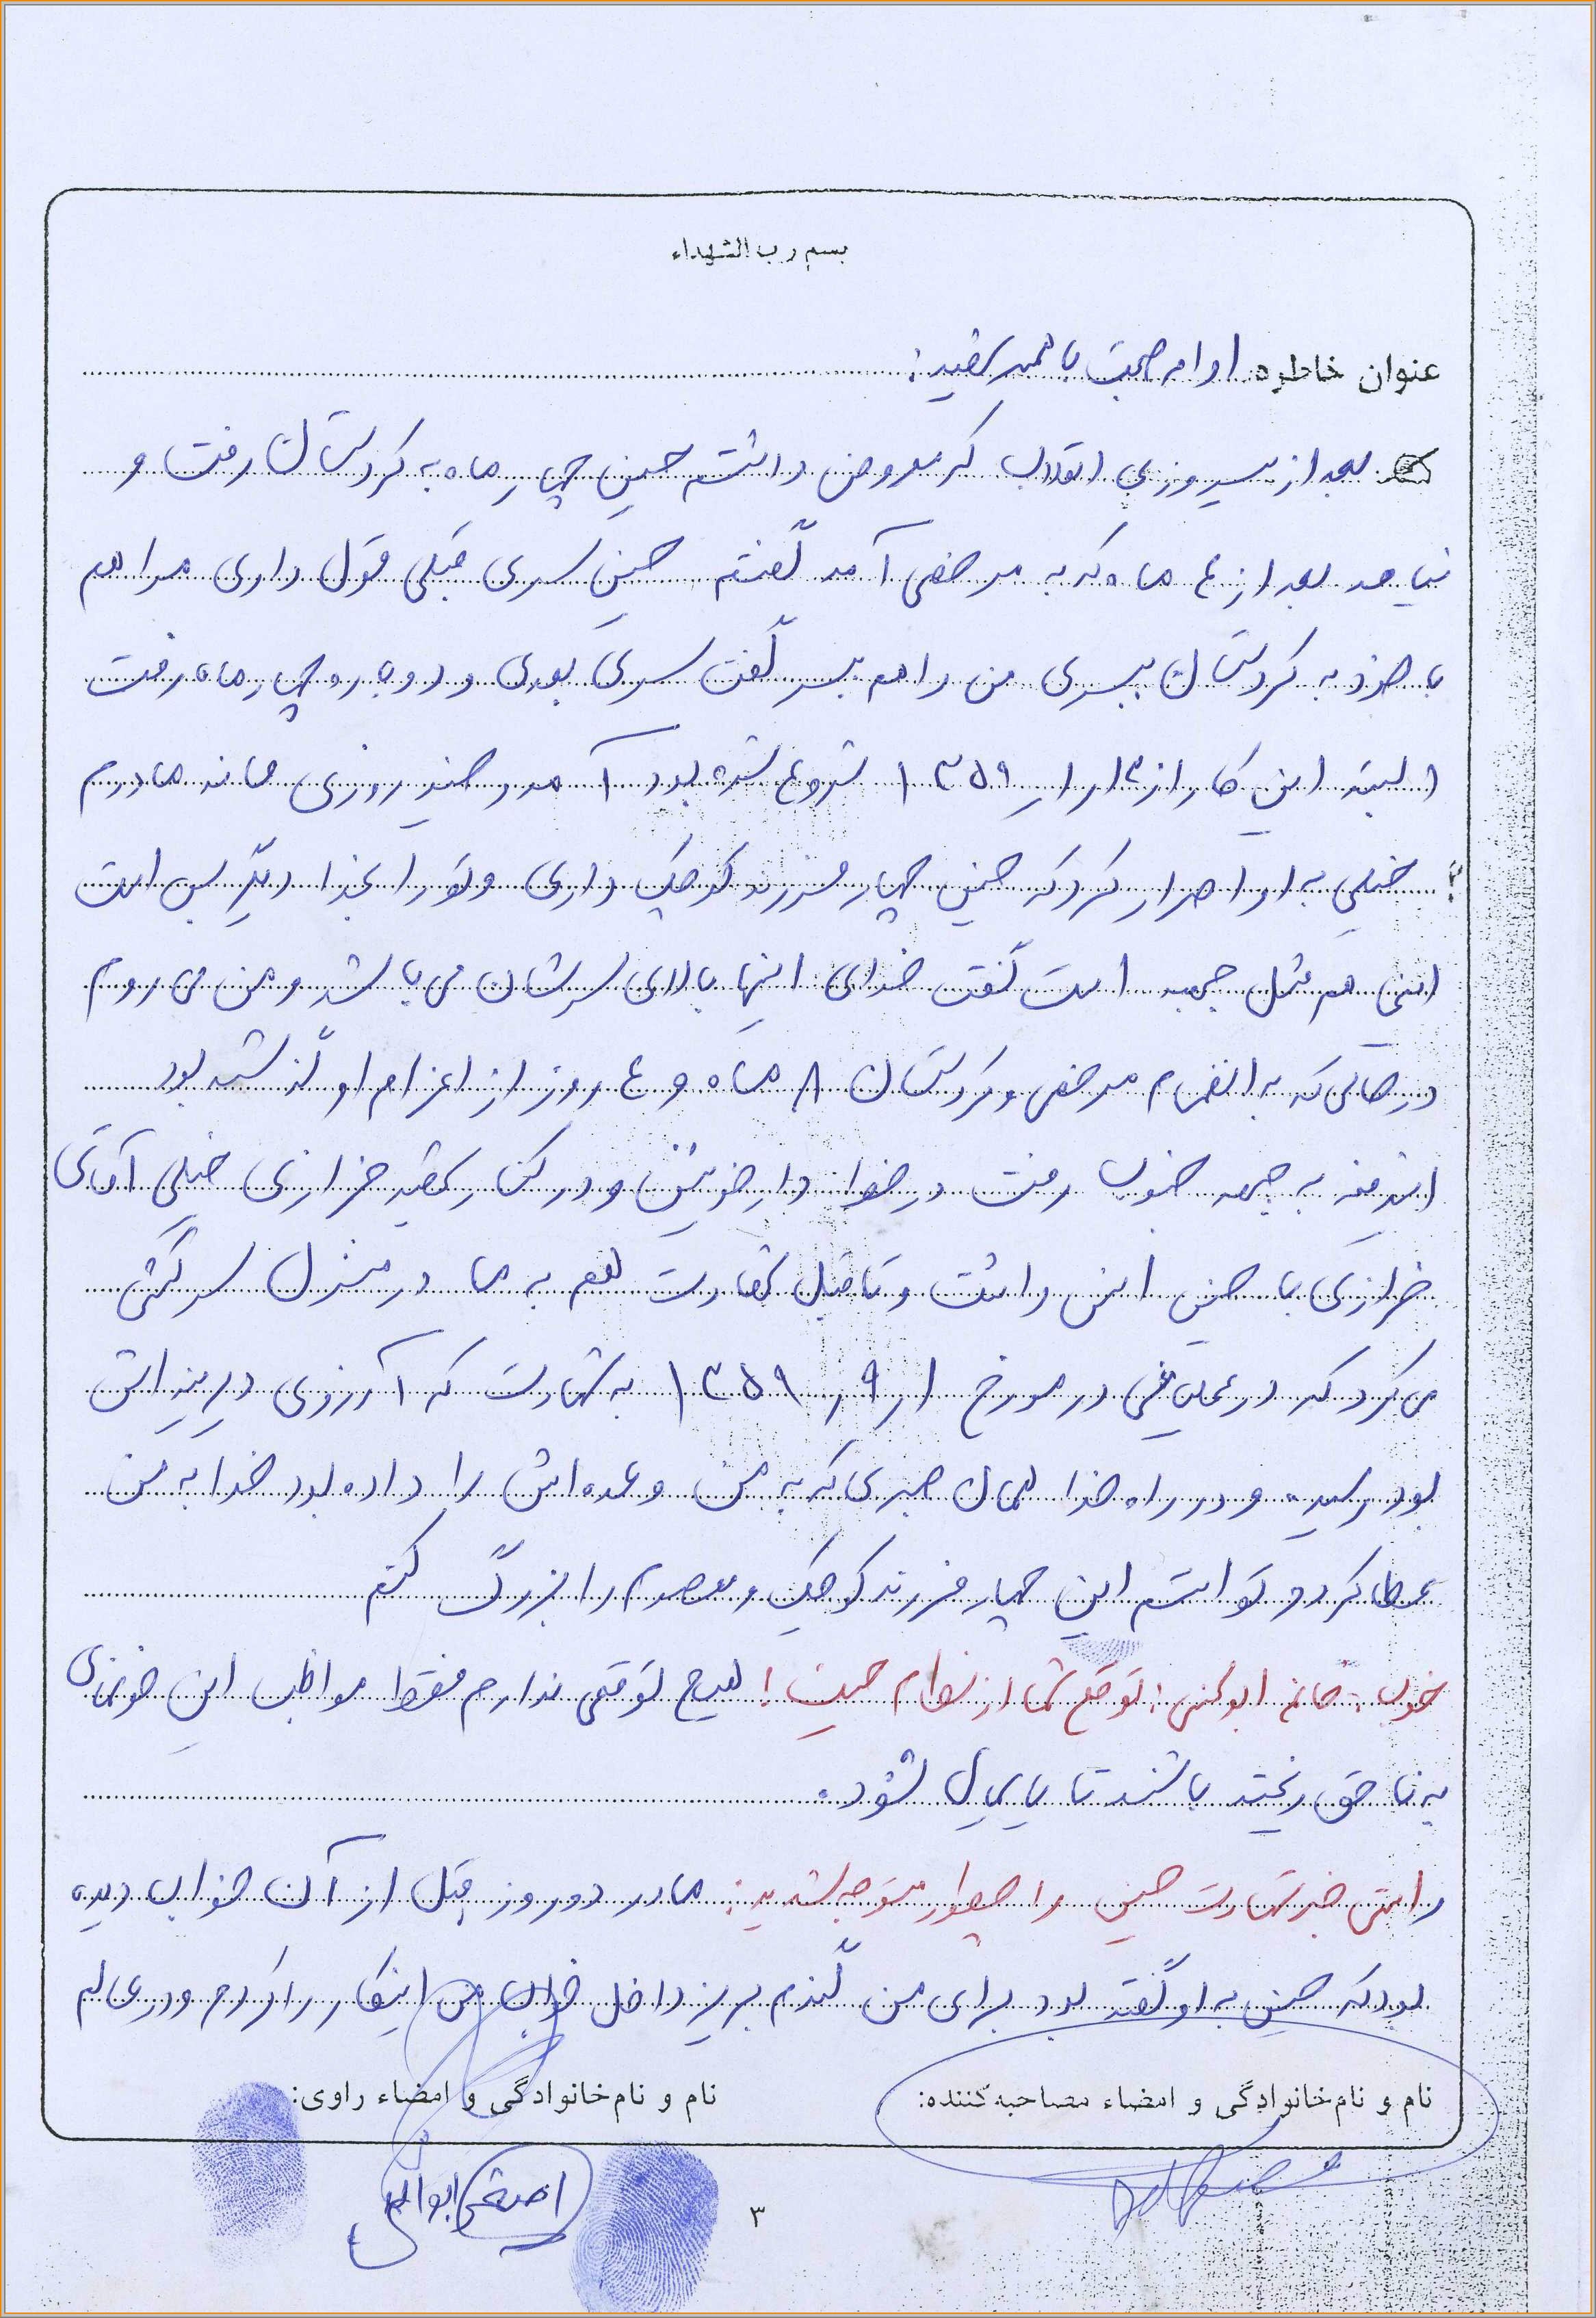 بسم رب الشهداء
عنوان خاطره ادامه صحبت با همسر شهید:
بعد از پیروزی انقلاب که معروض داشتم حسین چهار ماه به کردستان رفت و
نیامد بعد از ۴ ماه که به مرخصی آمد گفتم حسین سری قبلی قول دادی مرا هم
با خود به کردستان ببری من را هم ببر گفت سری بعدی و دوباره چهار ماه رفت
البته این کار از ۱۳۵۹ شروع شده بود آمد و چند روزی ماند مادرم
خیلی به او اصرار کرد که حسین چهار فرزند کوچک داری و تو را بخدا دیگر بس است
اینجا هم مثل جبهه است گفت خدای اینها بالای سرشان می باشد و من می روم
در حالی که به انضمام مرخصی و کردستان ۸ ماه و ۴ روز از اعزام او گذشته بود
ایندفعه به جبهه جنوب رفت در دارخوئین و در کنار شهید خرازی خیلی آقای
خرازی با حسین انس داشت و تا قبل شهادت هم به ما در منزل سرکشی
می کرد که در عملیاتی در مورخ ۱ر۹ر۱۳۵۹ به شهادت که آرزوی دیرینه اش
بود رسید. و در راه خدا همان صبری که به من وعده اش را داده بود خدا به من
عطا کرد و توانستم این چهار فرزند کوچک و معصوم را بزرگ کنم
خوب: خانم ابوالحسنی: توقع شما از نظام چیست! هیچ توقعی ندارم فقط مواظب این خونهای
به ناحق ریخته باشند تا پایمال نشود.
راستی خبر شهادت حسین را چطور متوجه شدید: مادر دو روز قبل از آن خواب دیده
بود که حسین به او گفته بود برای من گندم بریز داخل من اینکار را کردم و در عالم
نام و نام‌خانوادگی و امضاء مصاحبه‌کننده:
نام و نام‌خانوادگی و امضاء راوی:
۳